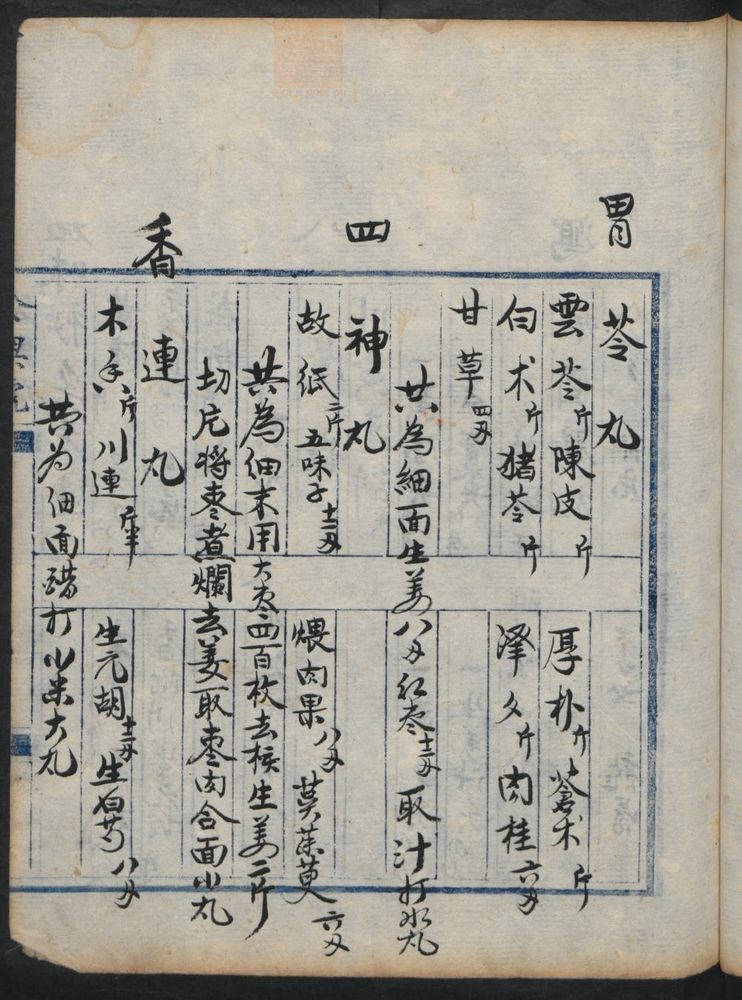 胃
苓丸
雲苓斤陳皮斤 厚朴斤蒼术斤
白术斤猪苓斤 泽夕斤肉桂六刄
甘草四刄
共為細面生姜八刄红枣十二刄取汁打水丸
四
神丸
故纸二斤五味子十二刄 煨肉果八刄 萸茱萸六刄
共為细末用大枣四百枚去核生姜二斤
切片将枣煮爛去姜取枣肉合面小丸
香
連丸
木香斤川連斤半 生元胡十二刄生白芍八刄
共为细面醋打小米大丸